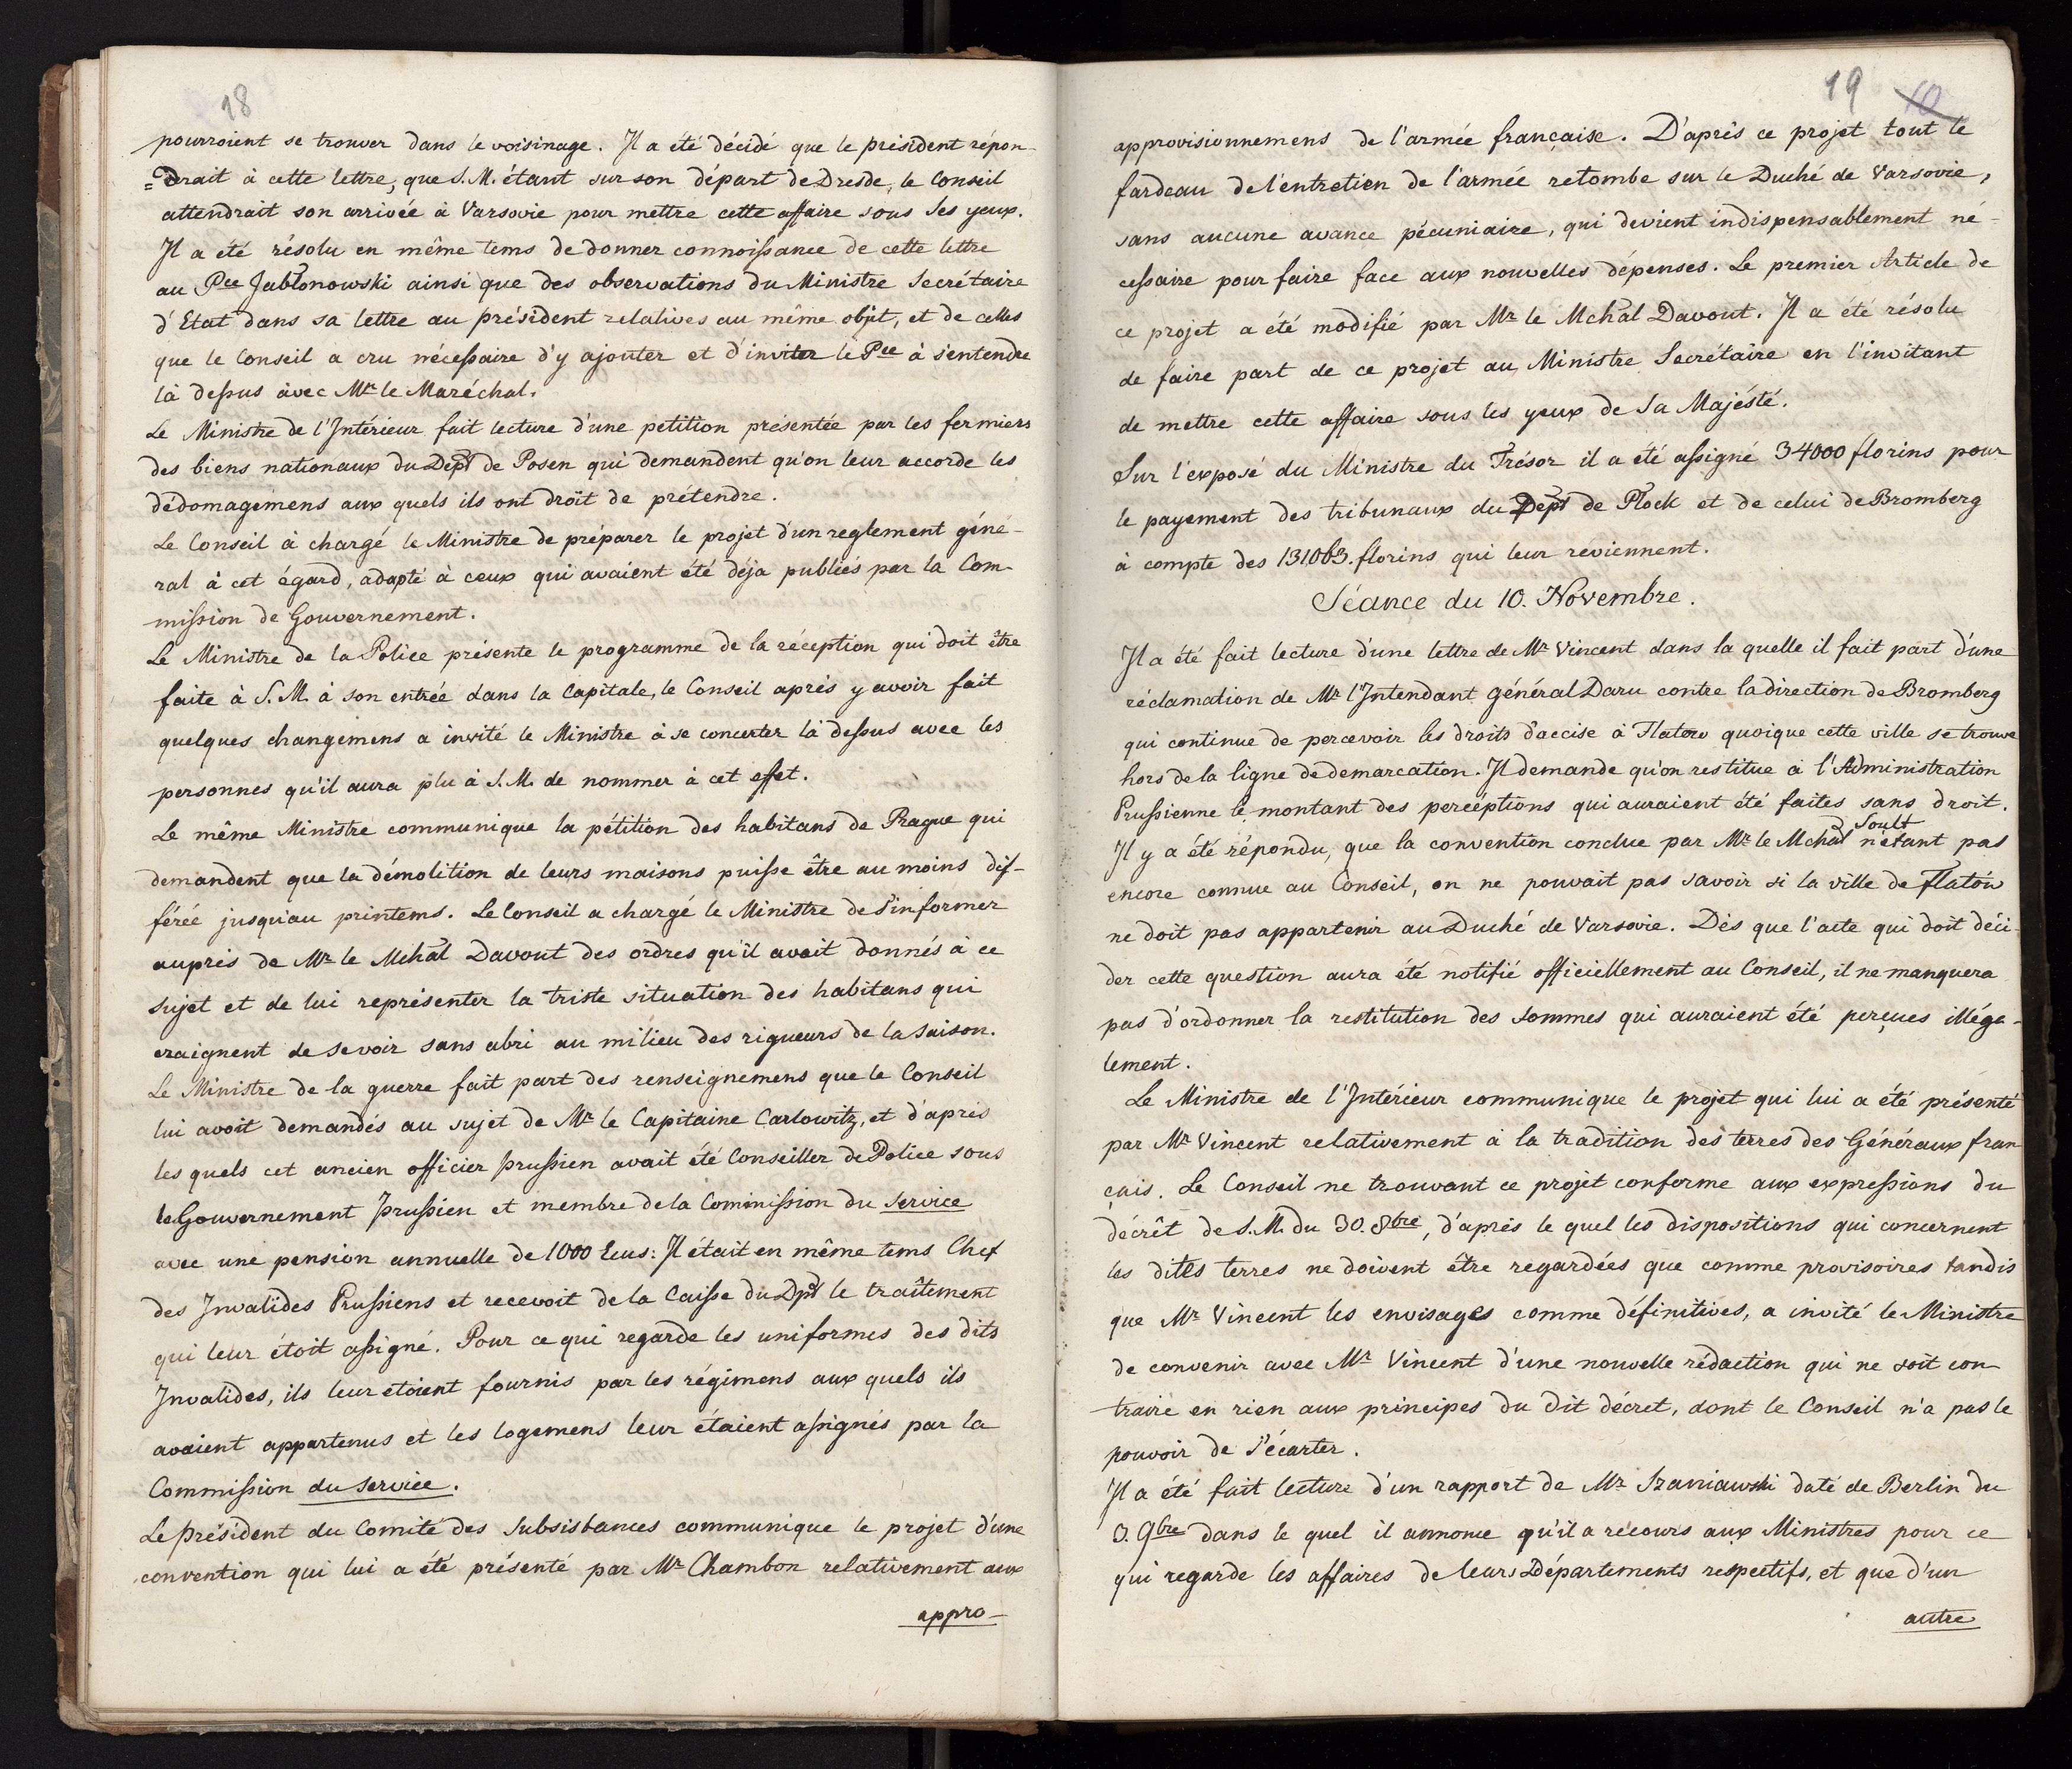 18
pourroient se trouver dans le voisinage. Il a été décidé que le président répon-
=drait à cette lettre, que S.M. étant sur son départ de Dresde, le Conseil
attendrait son arrivée à Varsovie pour mettre cette affaire sous ses yeux.
Il a été résolu en même tems de donner connoissance de cette lettre
au Pce Jabłonowski ainsi que des observations du Ministre Secrétaire
d'Etat dans sa lettre au président relatives au même objet, et de celles
que le Conseil a cru nécessaire d'y ajouter et d'inviter le Pce à s'entendre
là dessus avec Mr le Maréchal.
Le Ministre de l'Intérieur fait lecture d'une petition présentée par les fermiers
des biens nationaux du Dept de Posen qui demandent qu'on leur accorde les
dédomagemens aux quels ils ont droit de prétendre.
Le Conseil à chargé le Ministre de préparer le projet d'un reglement géné-
ral à cet égard, adapté à ceux qui avaient été déja publiés par la Com-
mission de Gouvernement.
Le Ministre de la Police présente le programme de la réception qui doit être
faite à S.M. à son entrée dans la Capitale, le Conseil après y avoir fait
quelques changemens a invité le Ministre à se concerter là dessus avec les
personnes qu'il aura plu à S.M. de nommer à cet effet.
Le même Ministre communique la pétition des habitans de Prague qui
demandent que la démolition de leurs maisons puisse être au moins dif-
férée jusqu'au printems. Le Conseil a chargé le Ministre de s'informer
auprès de Mr le Mchal Davout des ordres qu'il avait donnés à ce
sujet et de lui représenter la triste situation des habitans qui
craignent de se voir sans abri au milieu des rigueurs de la saison.
Le Ministre de la guerre fait part des renseignemens que le Conseil
lui avoit demandés au sujet de Mr le Capitaine Carlowitz, et d'après
les quels cet ancien officier prussien avait été Conseiller de Police sous
le Gouvernement prussien et membre de la Commission du service
avec une pension annuelle de 1000 Ecus: Il était en même tems Chef
des Invalides Prussiens et recevoit de la Caisse du Dpt le traîtement
qui leur étoit assigné. Pour ce qui regarde les uniformes des dits
Invalides, ils leur étoient fournis par les régimens aux quels ils
avaient appartenus et les logemens leur étaient assignés par la
Commission du service.
Le président du Comité des Subsistances communique le projet d'une
convention qui lui a été présenté par Mr Chambon relativement aux
appro-
19 10
approvisionnemens de l'armée française. D'après ce projet tout le
fardeau de l'entretien de l'armée retombe sur le Duché de Varsovie,
sans aucune avance pécuniaire, qui devient indispensablement né-
cessaire pour faire face aux nouvelles dépenses. Le premier Article de
ce projet a été modifié par Mr le Mchal Davout. Il a été résolu
de faire part de ce projet au Ministre Secrétaire en l'invitant
de mettre cette affaire sous les yeux de Sa Majésté.
Sur l'exposé du Ministre du Trésor il a été assigné 34000 florins pour
le payement des tribunaux du Dept de Płock et de celui de Bromberg
à compte des 131,063. florins qui leur réviennent.
Séance du 10. Novembre.
Il a été fait lecture d'une lettre de Mr Vincent dans la quelle il fait part d'une
réclamation de Mr l'Intendant général Daru contre la direction de Bromberg
qui continue de percevoir les droits d'accise à Flatow quoique cette ville se trouve
hors de la ligne de demarcation. Il demande qu'on restitue à l'Administration
Prussienne le montant des percéptions qui auraient été faites sans droit.
Il y a été répondu, que la convention conclue par Mr le Mchal Soult n'étant pas
encore connue au Conseil, on ne pouvait pas savoir si la ville de Flatów
ne doit pas appartenir au Duché de Varsovie. Dès que l'acte qui doit déci-
der cette question aura été notifié officiellement au Conseil, il ne manquera
pas d'ordonner la restitution des sommes qui auraient été perçues illéga-
lement.
Le Ministre de l'Intérieur communique le projet qui lui a été présenté
par Mr Vincent relativement à la tradition des terres des Généraux fran
çais. Le Conseil ne trouvant ce projet conforme aux expressions du
décrêt de S.M. du 30. 8bre, d'après le quel les dispositions qui concernent
les dites terres ne doivent être regardées que comme provisoires tandis
que Mr Vincent les envisages comme définitives, a invité le Ministre
de convenir avec Mr Vincent d'une nouvelle rédaction qui ne soit con-
traire en rien aux principes du dit décret, dont le Conseil n'a pas le
pouvoir de s'écarter.
Il a été fait lecture d'un rapport de Mr Szaniawski daté de Berlin du
3. 9bre dans le quel il annonce qu'il a récours aux Ministres pour ce
qui regarde les affaires de leurs Départements respectifs, et que d'un
autre